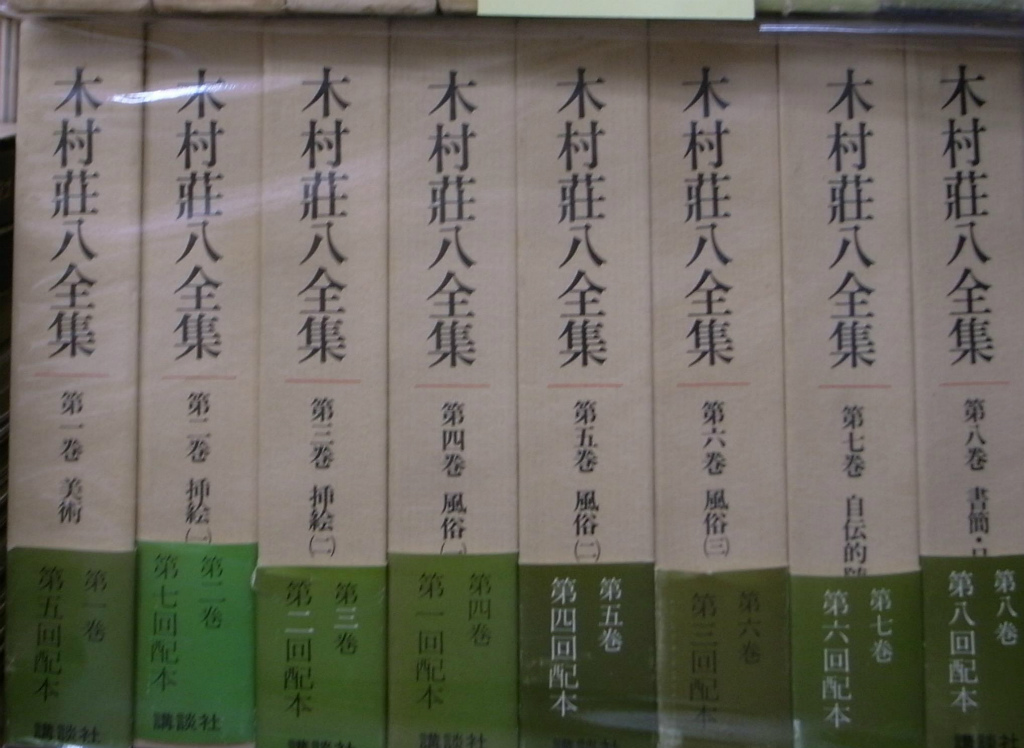 木村莊八全集
第一巻 美術
第一巻
第五回配本
講談社
木村莊八全集
第二巻 挿絵(一)
第二巻
第七回配本
講談社
木村莊八全集
第三巻 挿絵(二)
第三巻
第二回配本
講談社
木村莊八全集
第四巻 風俗(一
第四巻
第一回配本
講談社
木村莊八全集
第五巻 風俗(二)
第五巻
第四回配本
講談社
木村莊八全集
第六巻 風俗(三)
第六巻
第三回配本
木村莊八全集
第七巻 自伝的
第七巻
第六回配本
木村莊八全集
第八巻 書簡・
第八巻
第八回配本
講談社